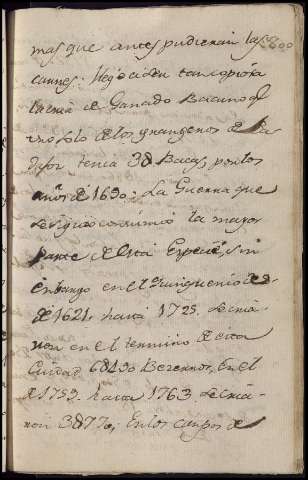 mas que antes pudieran las
carnes: llegó á ser tan copiosa
la cria de Ganado Bacuno q.e
uno solo de los grangeros de
tenia 3@ Bacas, por los
años de 1630; La Guerra que
se siguió consumió la mayor
parte de esta Especie, sin
embargo en el quinquenio
de 1621. hasta 1725. se cria-
ron en el termino de esta
Ciudad 6@430 Bezerros, En el
de 1753. hasta 1763. se cria-
ron 3@770; En los campos de